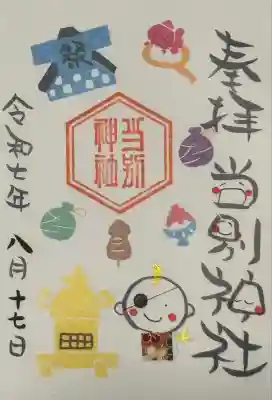 奉拝 当別神社
当別
神社
祭
令和七年 八月十七日